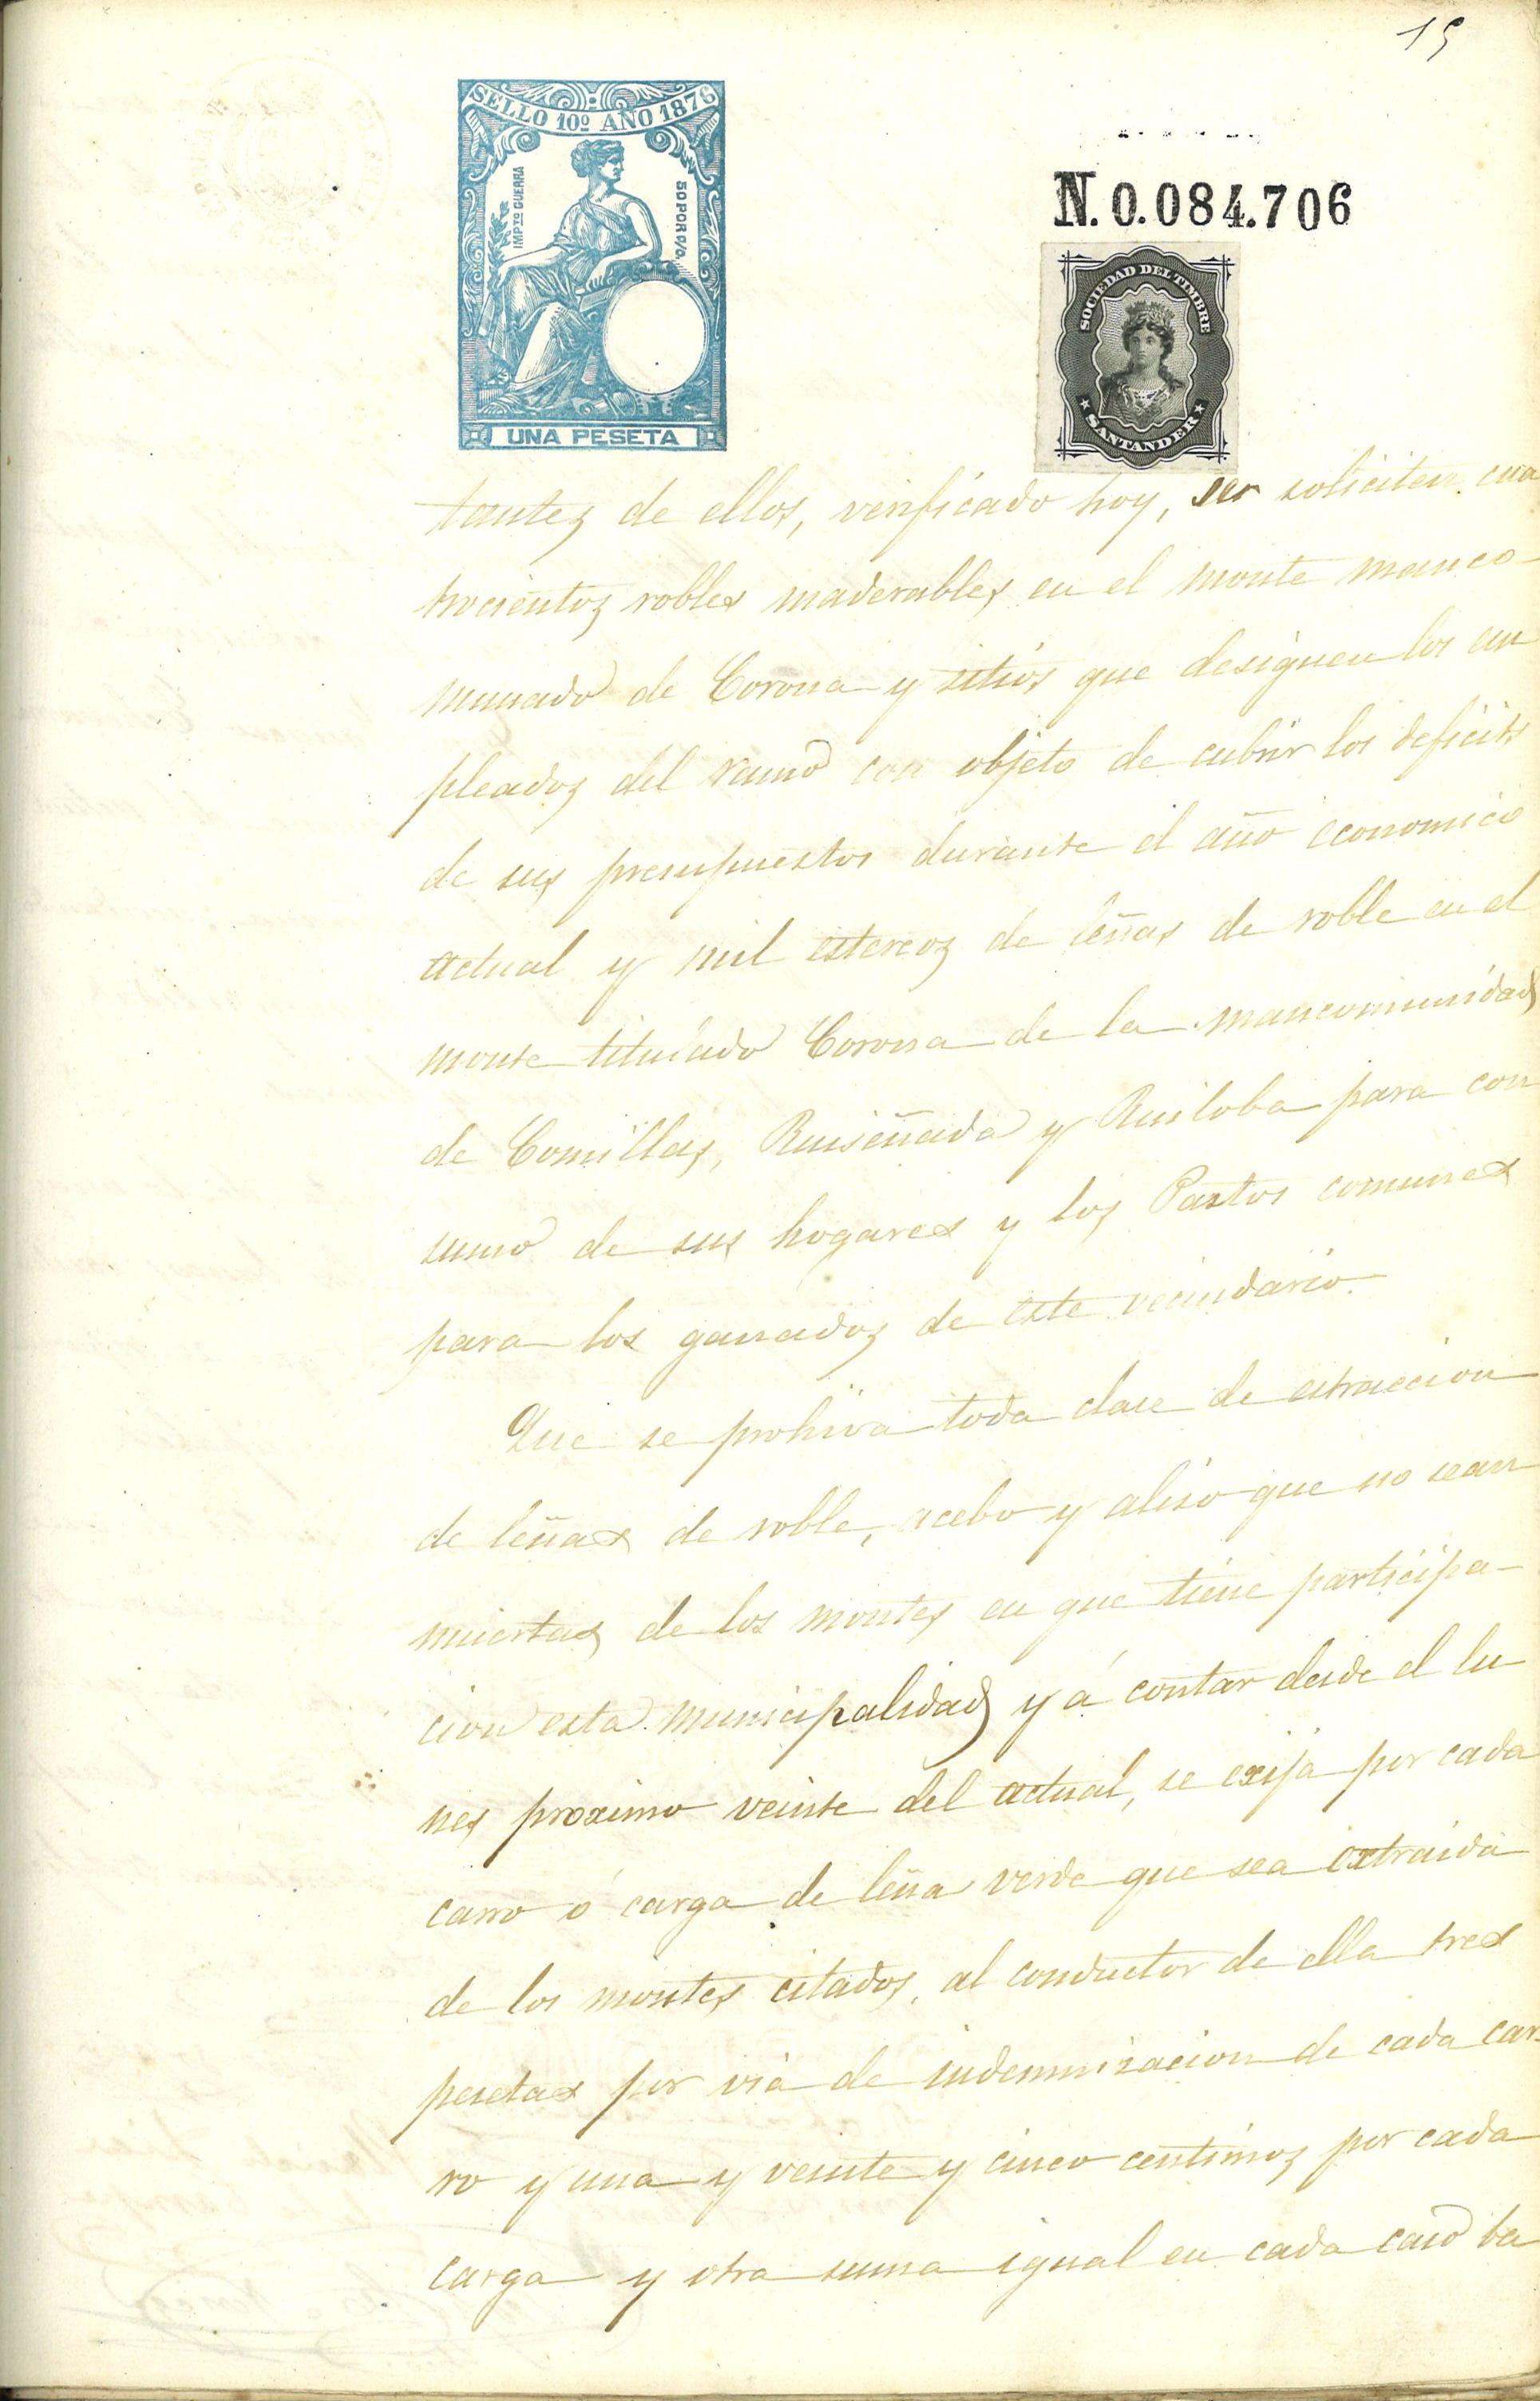 15
SELLO 10º AÑO 1876
IMPTO GUERRA
50 POR 0/0.
UNA PESETA
N. 0.084.706
SOCIEDAD DEL TIMBRE
SANTANDER
tantes de ellos, verificado hoy, se soliciten cua
trocientos robles maderables en el monte manco-
munado de Corona y sitios que designen los em
pleados del ramo con objeto de cubrir los deficits
de sus presupuestos durante el año economico
actual y mil estereos de leñas de roble en el
monte titulado Corona de la mancomunidad
de Comillas, Ruiseñada y Ruiloba para con
sumo de sus hogares y los Pastos comunes
para los ganados de este vecindario.
Que se prohiva toda clase de estraccion
de leñas de roble, acebo y aliso que no sean
muertas de los montes en que tiene participa-
cion esta municipalidad y á contar desde el lu
nes proximo veinte del actual, se exija por cada
carro ó carga de leña verde que sea extraida
de los montes citados, al conductor de ella tres
pesetas por via de indemnizacion de cada car-
ro y una y veinte y cinco centimos por cada
carga y otra suma igual en cada caso ba